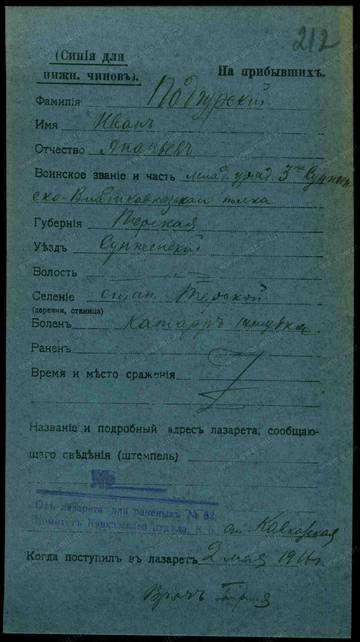 212
(Синія для
нижн. чиновъ).
На прибывшихъ.
Фамилія Подгурский
Имя Иванъ
Отчество
Воинское званіе и часть млад. уряд. 3го Сунжен
ско-Владикавказскаго полка
Губернія Терская
Уѣздъ Сунженский
Волость —
Селеніе стан. Терской
(деревня, станица)
Боленъ Катарръ желудка.
Раненъ
Время и мѣсто сраженія
Названіе и подробный адресъ лазарета, сообщаю-
щаго свѣдѣнія (штемпель)
№
От. лазарета для раненыхъ №
Комитетъ Кавказскаго Отдѣла
ст. Кавказская
Когда поступилъ въ лазаретъ 2 мая 1916 г.
Врачъ